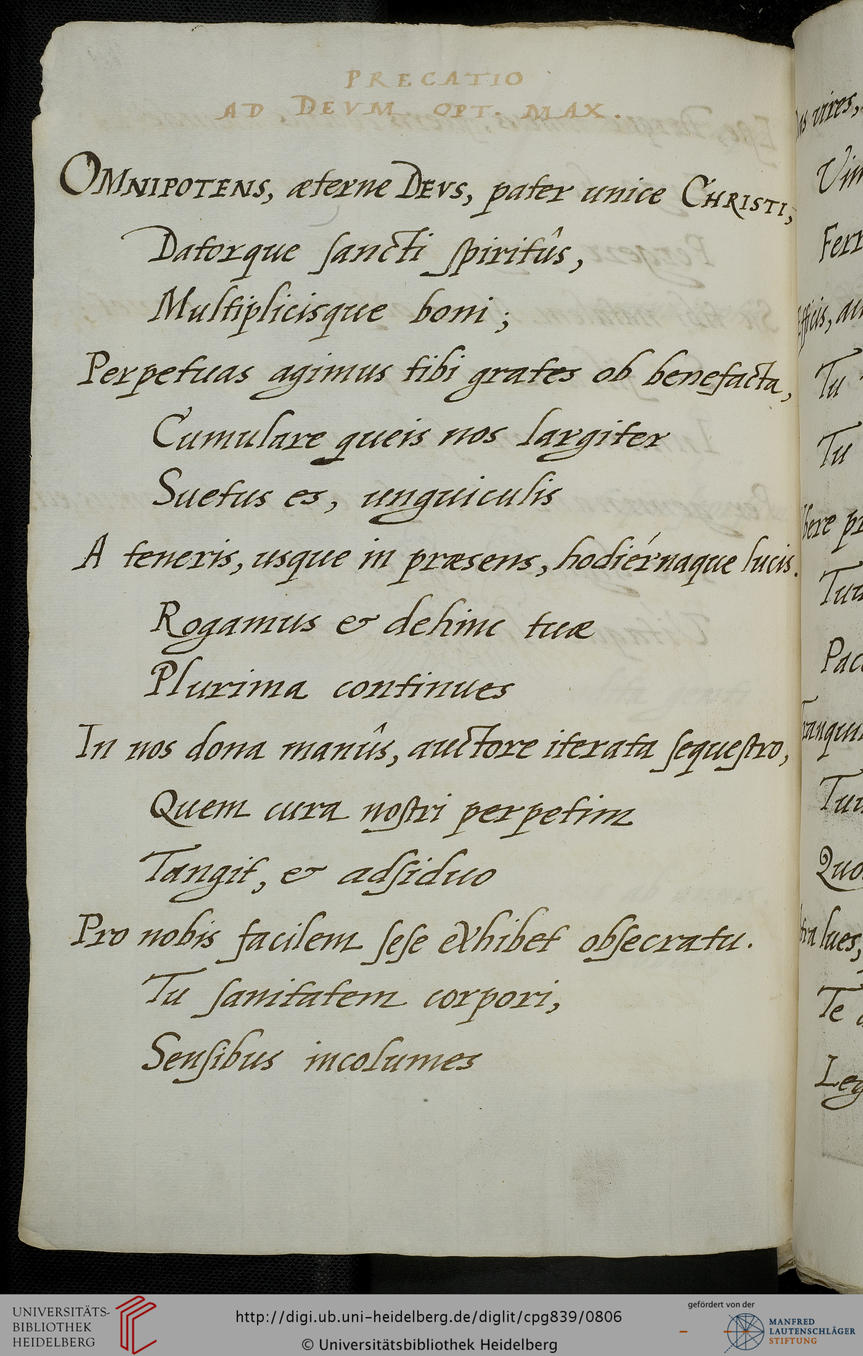 PRECATIO
AD DEVM OPT. MAX.
OMNIPOTENS, æterne DEVS, pater unice CHRISTI,
Datorque sancti spiritûs,
Multiplicisque boni;
Perpetuas agimus tibi grates ob benefacta,
Cumulare queis nos largiter
Suetus es, unguiculis
A teneris, usque in præsens, hodiérnaque lucis.
Rogamus & dehinc tuæ
Plurima continues
In nos dona manûs, auctore iterata sequestro,
Quem cura nostri perpetim
Tangit, & adsiduo
Pro nobis facilem sese exhibet obsecratu.
Tu sanitatem corpori,
Sensibus incolumes
vires,
Ferr
Tu
Tu
Te
UNIVERSITÄTS-
BIBLIOTHEK
HEIDELBERG
http://digi.ub.uni-heidelberg.de/diglit/cpg839/0806
© Universitätsbibliothek Heidelberg
gefördert von der
MANFRED
LAUTENSCHLÄGER
STIFTUNG